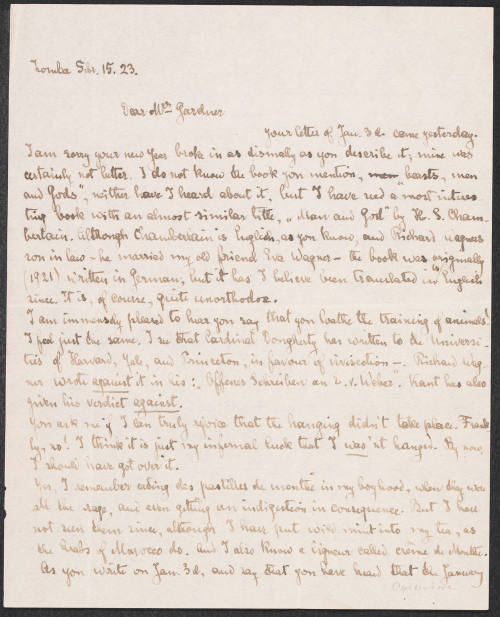 Zomba Febr. 15. 23.
Dear Mrs Gardner
your letter of Jan. 3d. came yesterday.
I am sorry your new Year broke in as dismally as you describe it; mine was
certainly not better. I do not know the book you mention, men "beasts, men
and Gods", neither have I heard about it, but I have read a most interes-
ting book with an almost similar title, "Man and God" by H. S. Cham-
berlain. Although Chamberlain is English, as you know, and Richard Wagners
son in law - he married my old friend Eva Wagner - the book was originally
(1921) written in German, but it has I believe been translated in English
since. It is, of course, quite unorthodox.
I am immensely pleased to hear you say that you loathe the training of animals!
I feel just the same. I see that Cardinal Dougherty has written to the Universi-
ties of Harvard, Yale, and Princeton, in favour of vivisection -. Richard Wag-
ner wrote against it in his: "Offenes Schreiben an E. v. Weber". Kant has also
given his verdict against.
You ask me if I can truly rejoice that the hanging didn't take place. Frank-
ly, no! I think it is just my infernal luck that I was'nt hanged. By now,
I should have got over it.
Yes, I remember eating des pastilles de menthe in my boyhood, when they were
all the rage, and even getting an indigestion in consequence. But I have
not seen them since, although I have put wild mint into my tea, as
the Arabs of Marocco do. And I also know a liqueur called crème de Menthe.
As you write on Jan. 3d, and say that you have heard that the January